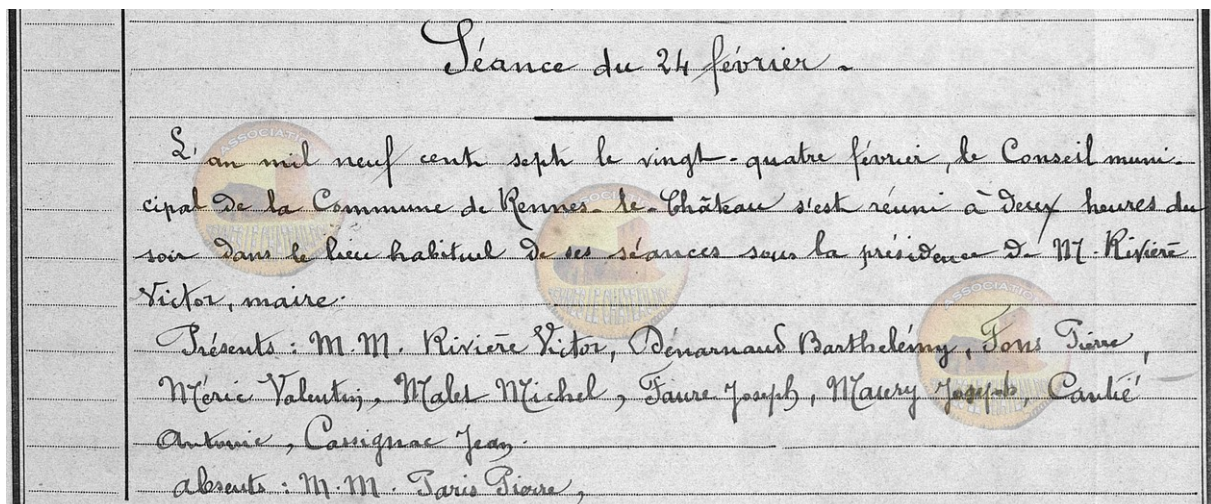 Séance du 24 février.
L'an mil neuf cent sept le vingt-quatre février, le Conseil muni-
cipal de la Commune de Rennes-le-Château s'est réuni à deux heures du
soir dans le lieu habituel de ses séances sous la présidence de M. Rivière
Victor, maire.
Présents : M.M. Rivière Victor, Dénarnaud Barthelémy, Fons Pierre,
Méric Valentin, Malet Michel, Faure Joseph, Maury Joseph, Cautié
Antonie, Cassignac Jean.
absents : M.M. Paris Pierre,